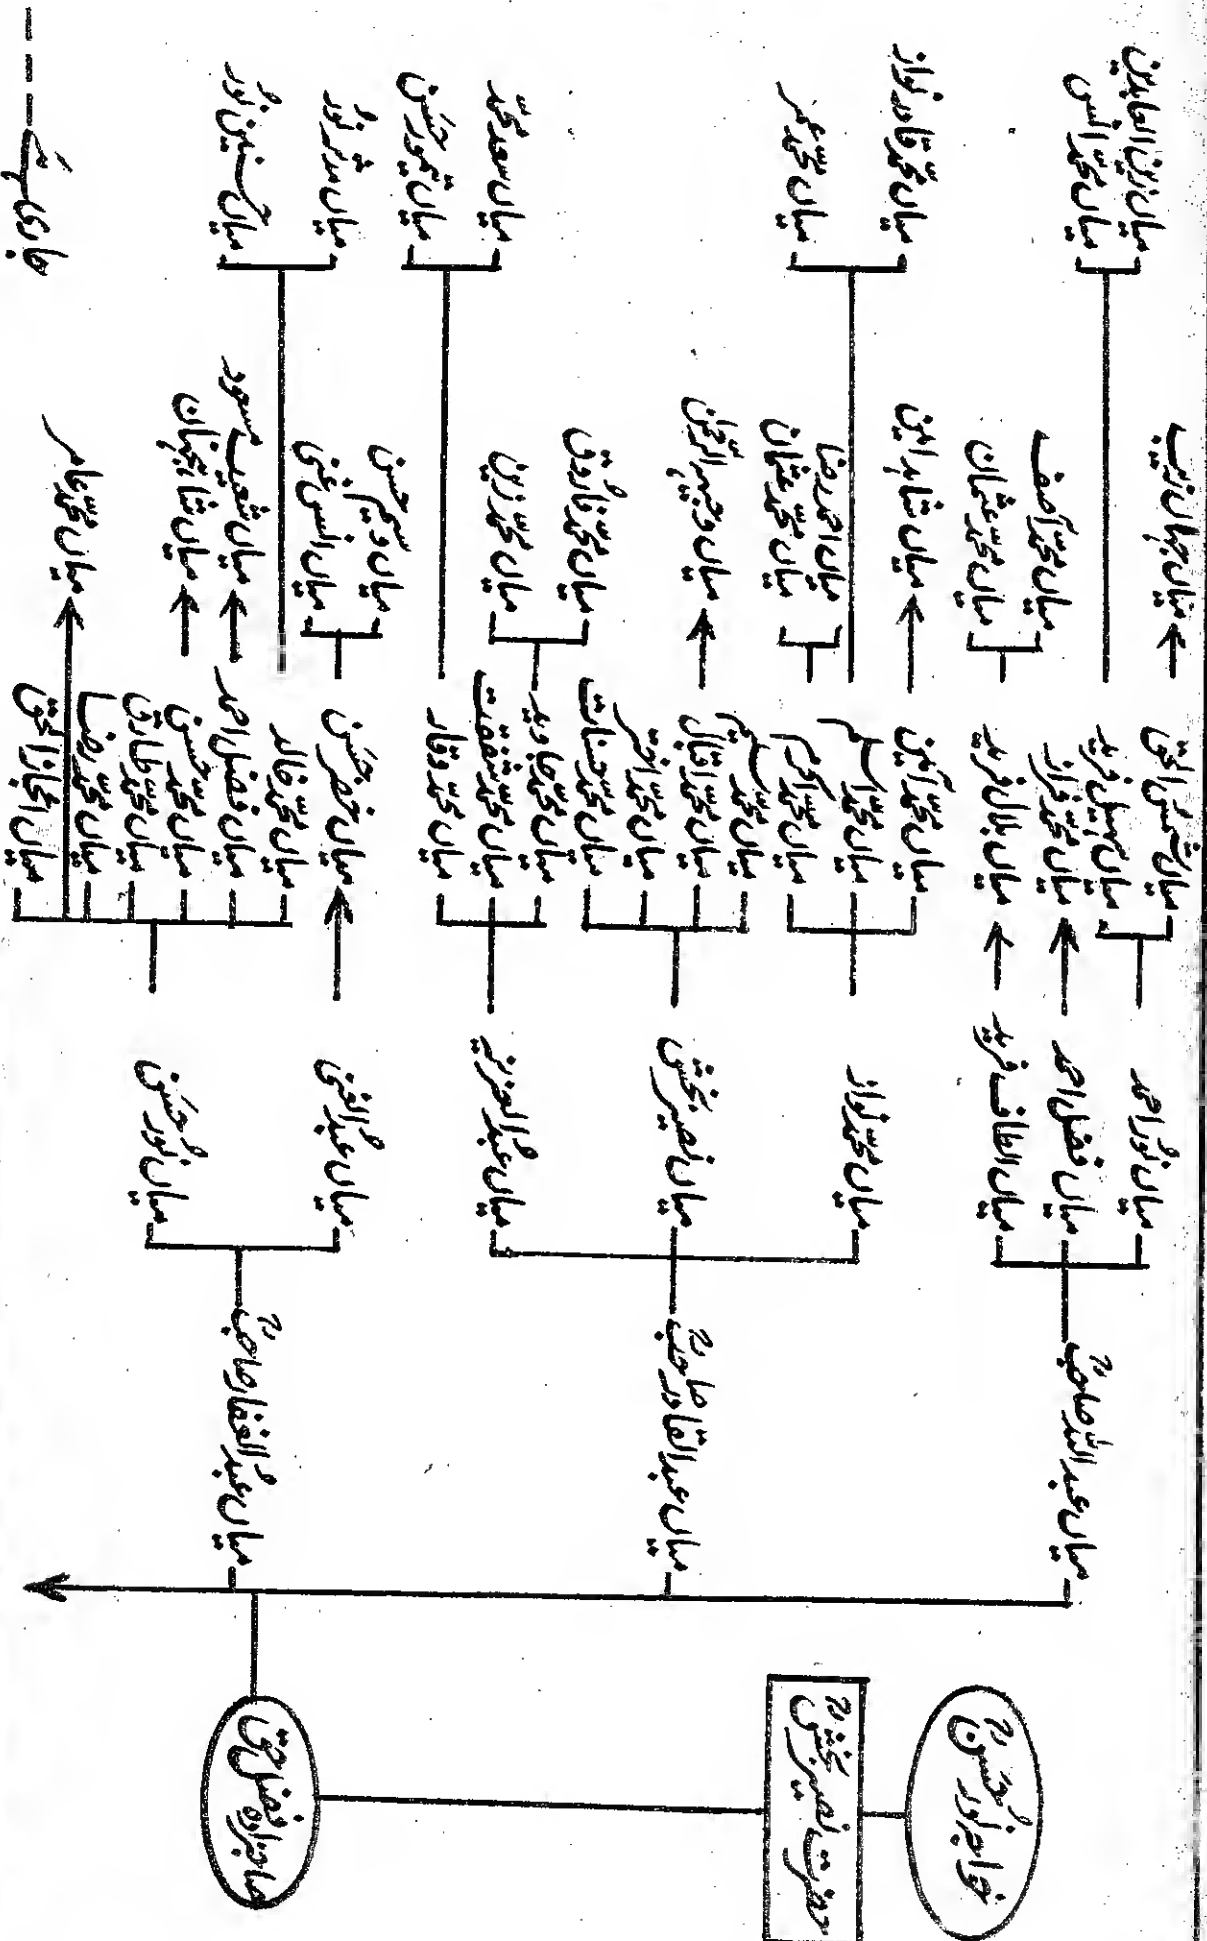 خواجہ نور حسنؒ
حضرت نصیر بخشؒ
صاحبزادہ فضل حق
میاں عبداللہ صاحبؒ
میاں عبدالقادر صاحبؒ
میاں عبدالغفار صاحبؒ
میاں نور احمد
میاں فضل احمد
میاں الطاف فرید
میاں محمد نواز
میاں نصیر بخش
میاں عبدالعزیز
میاں عبدالغنی
میاں نور حسن
میاں شمس الحق
میاں سہیل فرید
میاں محمد فراز
میاں بلال فرید
میاں محمد امین
میاں محمد اسلم
میاں محمد اکرم
میاں محمد سلیم
میاں محمد اقبال
میاں محمد اختر
میاں محمد حسنات
میاں محمد جاوید
میاں محمد شفقت
میاں محمد وقار
میاں خضر حسن
میاں محمد خالد
میاں فضل احمد
میاں محمد حسن
میاں محمد طارق
میاں محمد رضا
میاں اعجاز الحق
میاں جہاں زیب
میاں محمد آصف
میاں محمد عثمان
میاں شاہد امین
میاں احمد رضا
میاں محمد عثمان
میاں وجیہہ الرحمٰن
میاں محمد فاروق
میاں محمد زین
میاں وسیم حسن
میاں انس غنی
میاں شعیب مسعود
میاں شاہجہان
میاں محمد عامر
میاں زین العابدین
میاں محمد انس
میاں محمد قادر نواز
میاں محمد عمر
میاں سعد محمد
میاں تیمور حسن
میاں مدثر نور
میاں حسنین نور
جاری ہے